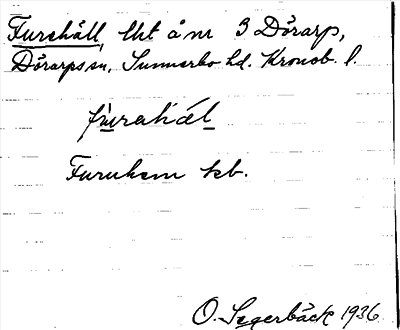 Furehäll, lht å nr 3 Dörarp,
Dörarps sn, Sunnerbo hd. Kronob. l.
fùrahál
Furuhem kb.
O. Segerbäck 1936